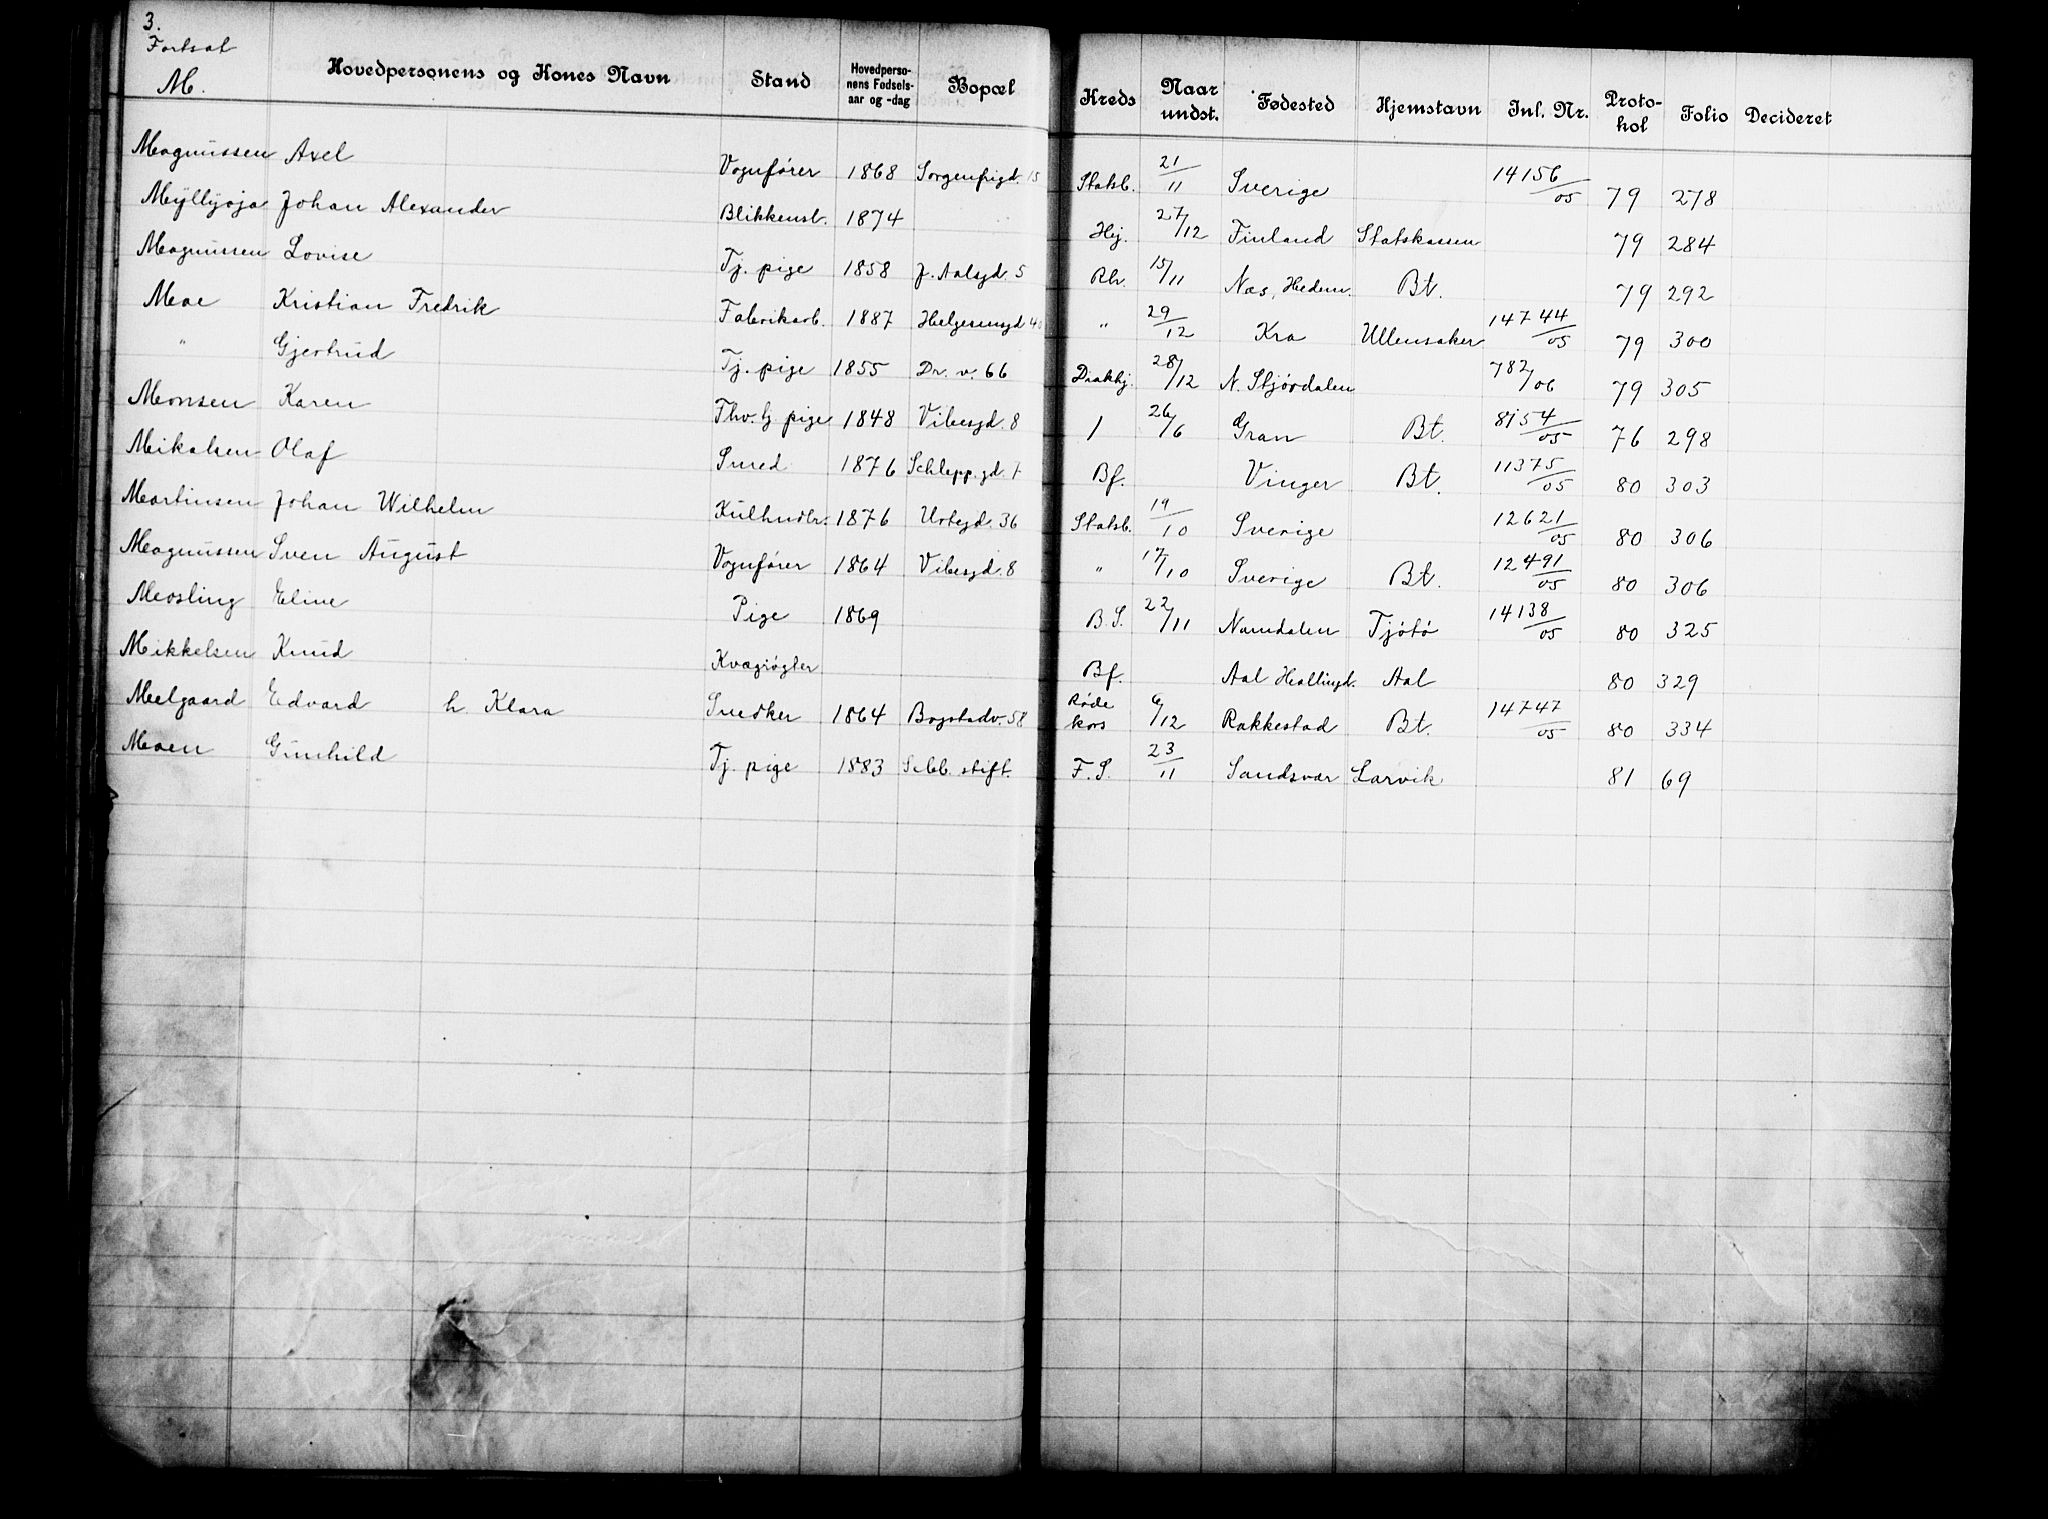 3.
Fortsat
M.
Hovedpersonens og Kones Navn Stand Hovedpersonens Fødselsaar og -dag Bopæl Kreds Naar undst. Fødested Hjemstavn Inl. Nr. Protokol Folio Decideret
Magnussen Axel Vognfører 1868 Sorgenfrigd. 15 Statsb. 21/11 Sverige 14156/05 79 278
Myllyoja Johan Alexander Blikkensl. 1874 Hij. 27/12 Finland Statskassen 79 284
Magnussen Lovise Tj. pige 1858 J. Aalsgd. 5 Rh. 15/11 Næs, Hedem. Bt. 79 292
Moe Kristian Fredrik Fabrikarb. 1887 Helgesensgd 40 " 29/12 Kra Ullensaker 14744/05 79 300
" Gjertrud Tj. pige 1855 Dr. v. 66 Diakhj. 28/12 N. Stjørdalen 782/06 79 305
Monsen Karen Fhv. tj pige 1848 Vibesgd. 8 1 26/6 Gran Bt. 8154/05 76 298
Mikalsen Olaf Smed 1876 Schlepp.gd. 7 Bf. Vinger Bt. 11375/05 80 303
Martinsen Johan Wilhelm Kulhndlr. 1876 Urtegd. 36 Statsb. 19/10 Sverige 12621/05 80 306
Magnussen Sven August Vognfører 1864 Vibesgd. 8 " 17/10 Sverige Bt. 12491/05 80 306
Mosling Eline Pige 1869 B. S. 22/11 Namdalen Tjøtø 14138/05 80 325
Mikkelsen Knud Kvægrøgter Bf. Aal Hallingd. Aal 80 329
Melgaard Edvard h. Klara Snedker 1864 Bogstadv. 58 Røde kors 6/12 Rakkestad Bt. 14747/05 80 334
Moen Gunhild Tj. pige 1883 Sebb. stift. F. S. 23/11 Sandsvær Larvik 81 69